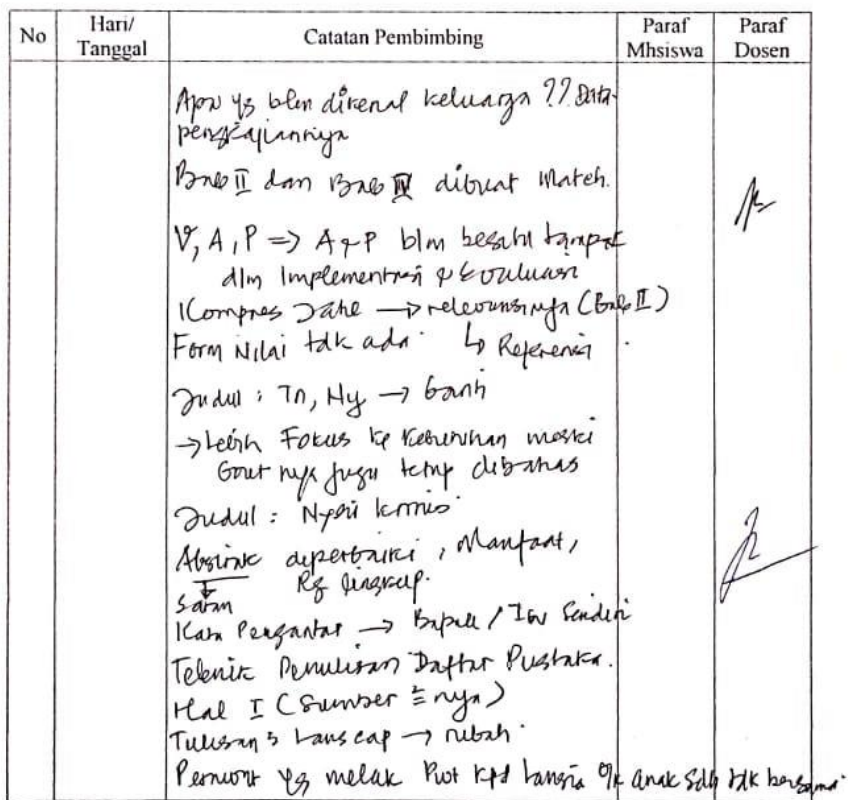 No
Hari/
Tanggal
Catatan Pembimbing
Paraf
Mhsiswa
Paraf
Dosen
Apa yg blm dikenal keluarga ?? Data
pengkajiannya
Bab II dan Bab IV dibuat Match.
V, A, P => A & P blm begitu tampak
dlm Implementasi & Evaluasi
Kompres Jahe → relevansinya (Bab II)
Form Nilai tdk ada. ↳ Referensi
Judul : Tn, Ny → Ganti
→ Lebih Fokus ke Kebutuhan meski
Gout nya juga tetap dibahas
Judul : Nyeri kronis
Abstrak diperbaiki, Manfaat,
Rg lingkup.
Saran
Kata Pengantar → Bapak / Ibu Sendiri
Teknik Penulisan Daftar Pustaka.
Hal I (Sumber ² nya)
Tulisan ² Lanscap → rubah
yg kpd Lansia anak sdh tdk bersama